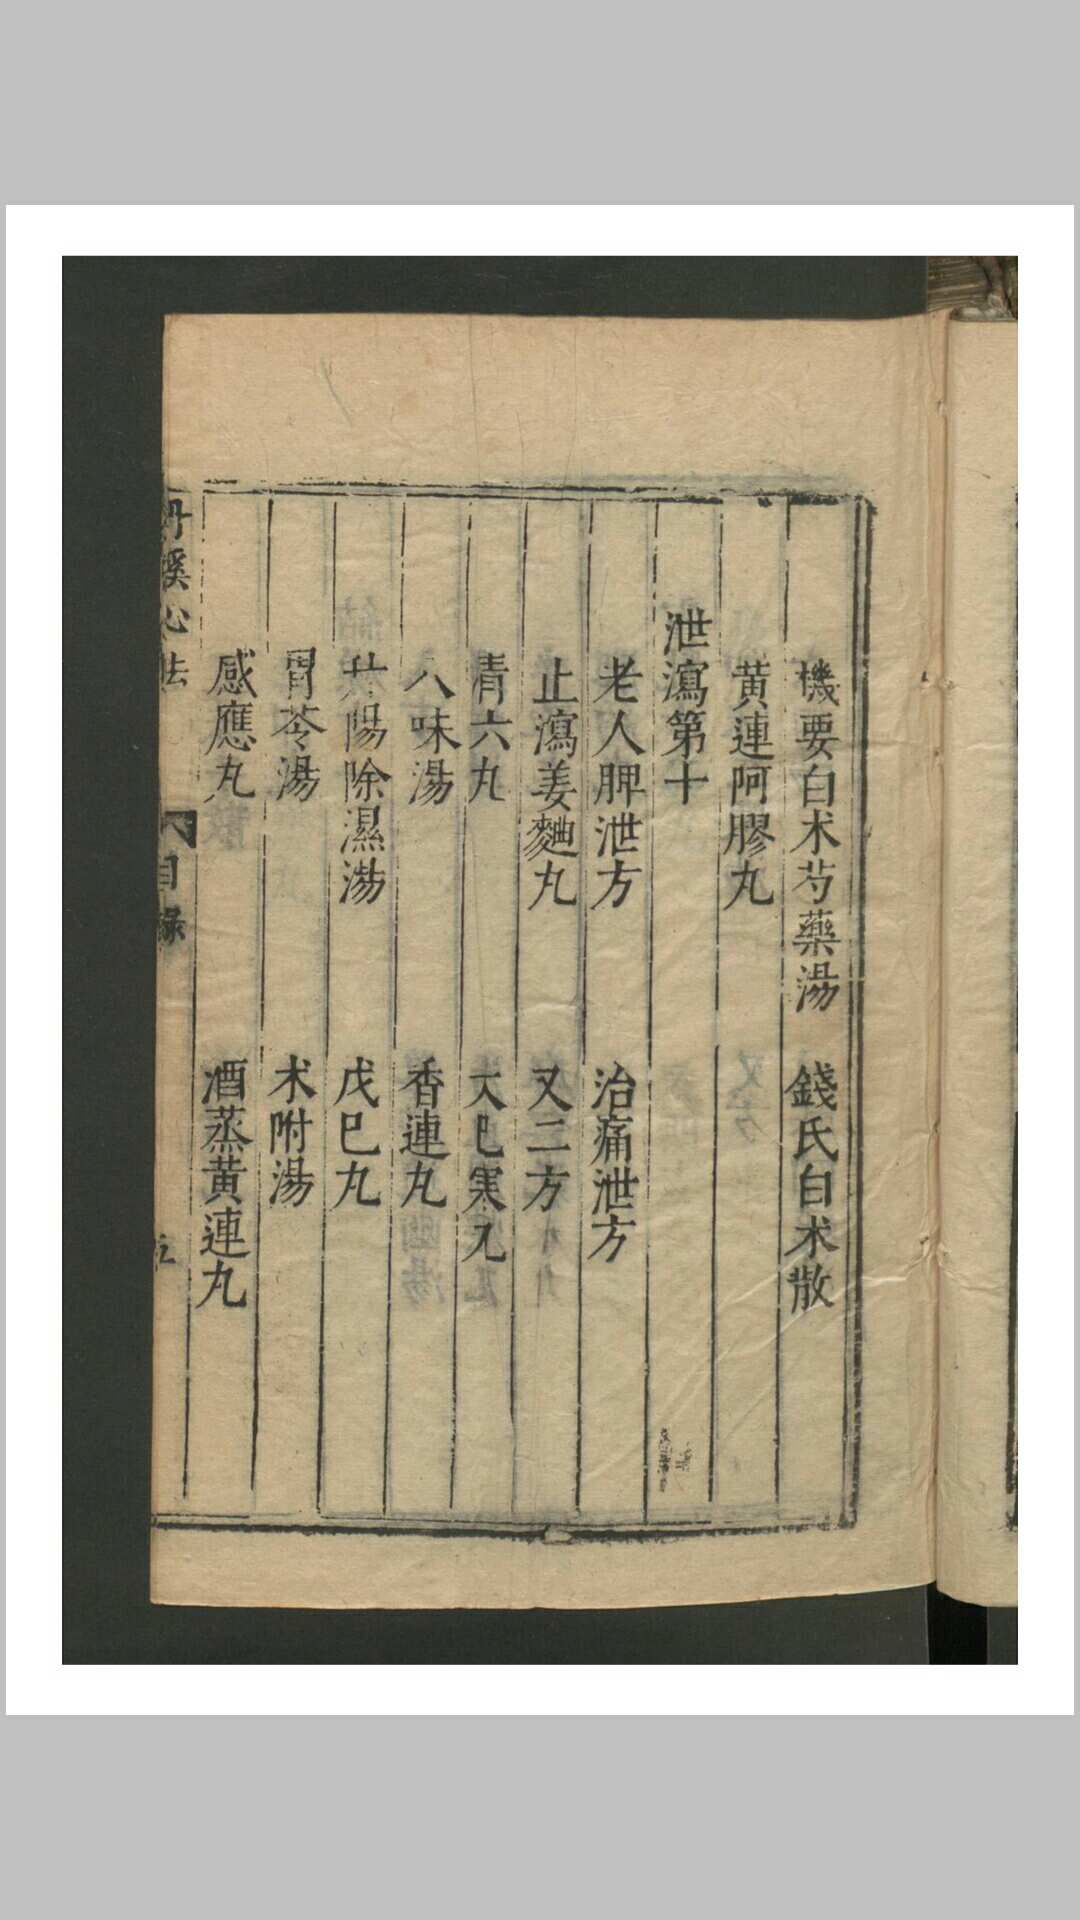 機要白术芍藥湯　錢氏白术散
黃連阿膠丸
泄瀉第十
老人脾泄方　治痛泄方
止瀉姜麯丸　又二方
清六丸　大巳寒丸
八味湯　香連丸
升陽除濕湯　戊巳丸
胃苓湯　术附湯
感應丸　酒蒸黃連丸
丹溪心法　目錄